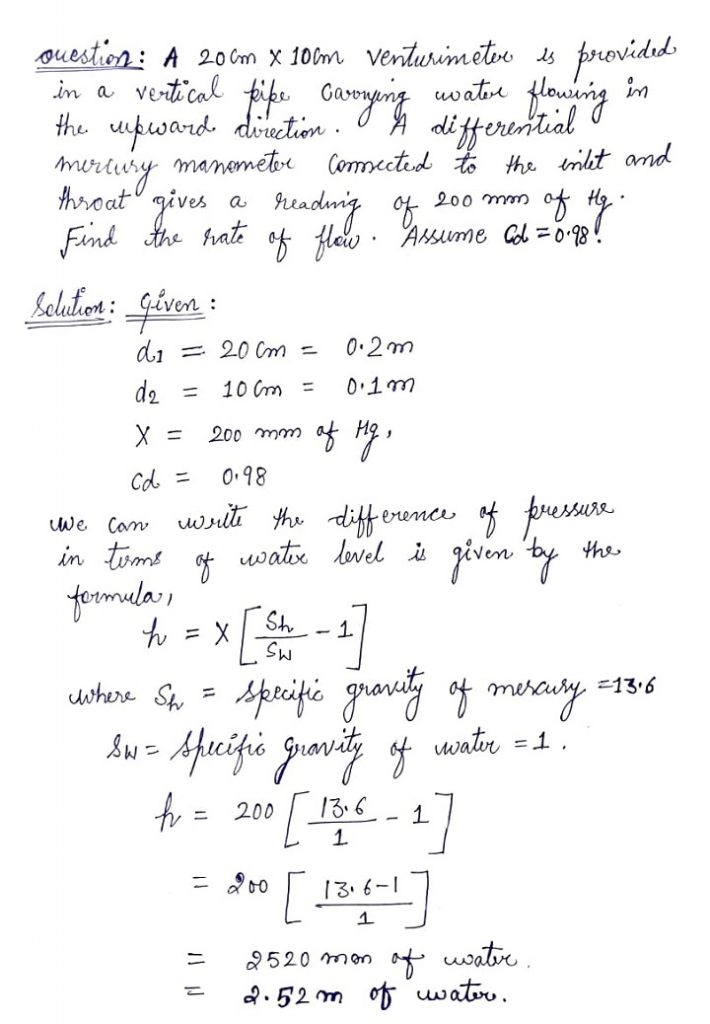 Question: A 20cm X 10cm venturimeter is provided
in a vertical pipe carrying water flowing in
the upward direction. A differential
mercury manometer connected to the inlet and
throat gives a reading of 200 mm of Hg.
Find the rate of flow. Assume Cd = 0.98.
Solution: Given:
d1 = 20 Cm = 0.2m
d2 = 10 Cm = 0.1m
X = 200 mm of Hg,
Cd = 0.98
we can write the difference of pressure
in terms of water level is given by the
formula,
h = X [Sh/Sw - 1]
where Sh = Specific gravity of mercury = 13.6
Sw = Specific gravity of water = 1.
h = 200 [13.6/1 - 1]
= 200 [13.6-1/1]
= 2520 mm of water.
= 2.52 m of water.